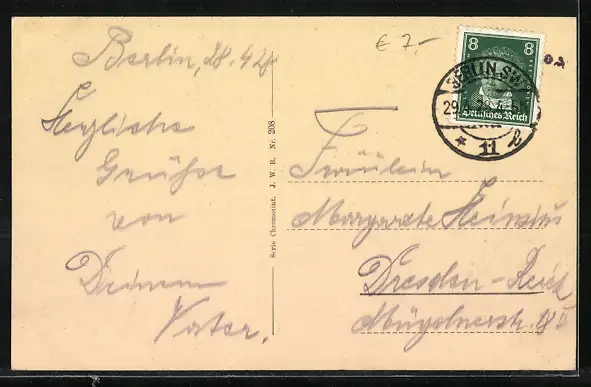 Berlin, 28.4.28
Herzliche
Grüße
von
Deinem
Vater.
Serie Chromotint. J. W. B. Nr. 208
€ 7,-
8 8
Deutsches Reich
BERLIN SW
29.4.
* 11 b
Fräulein
Margarete
Dresden-
Mügelnerstr.